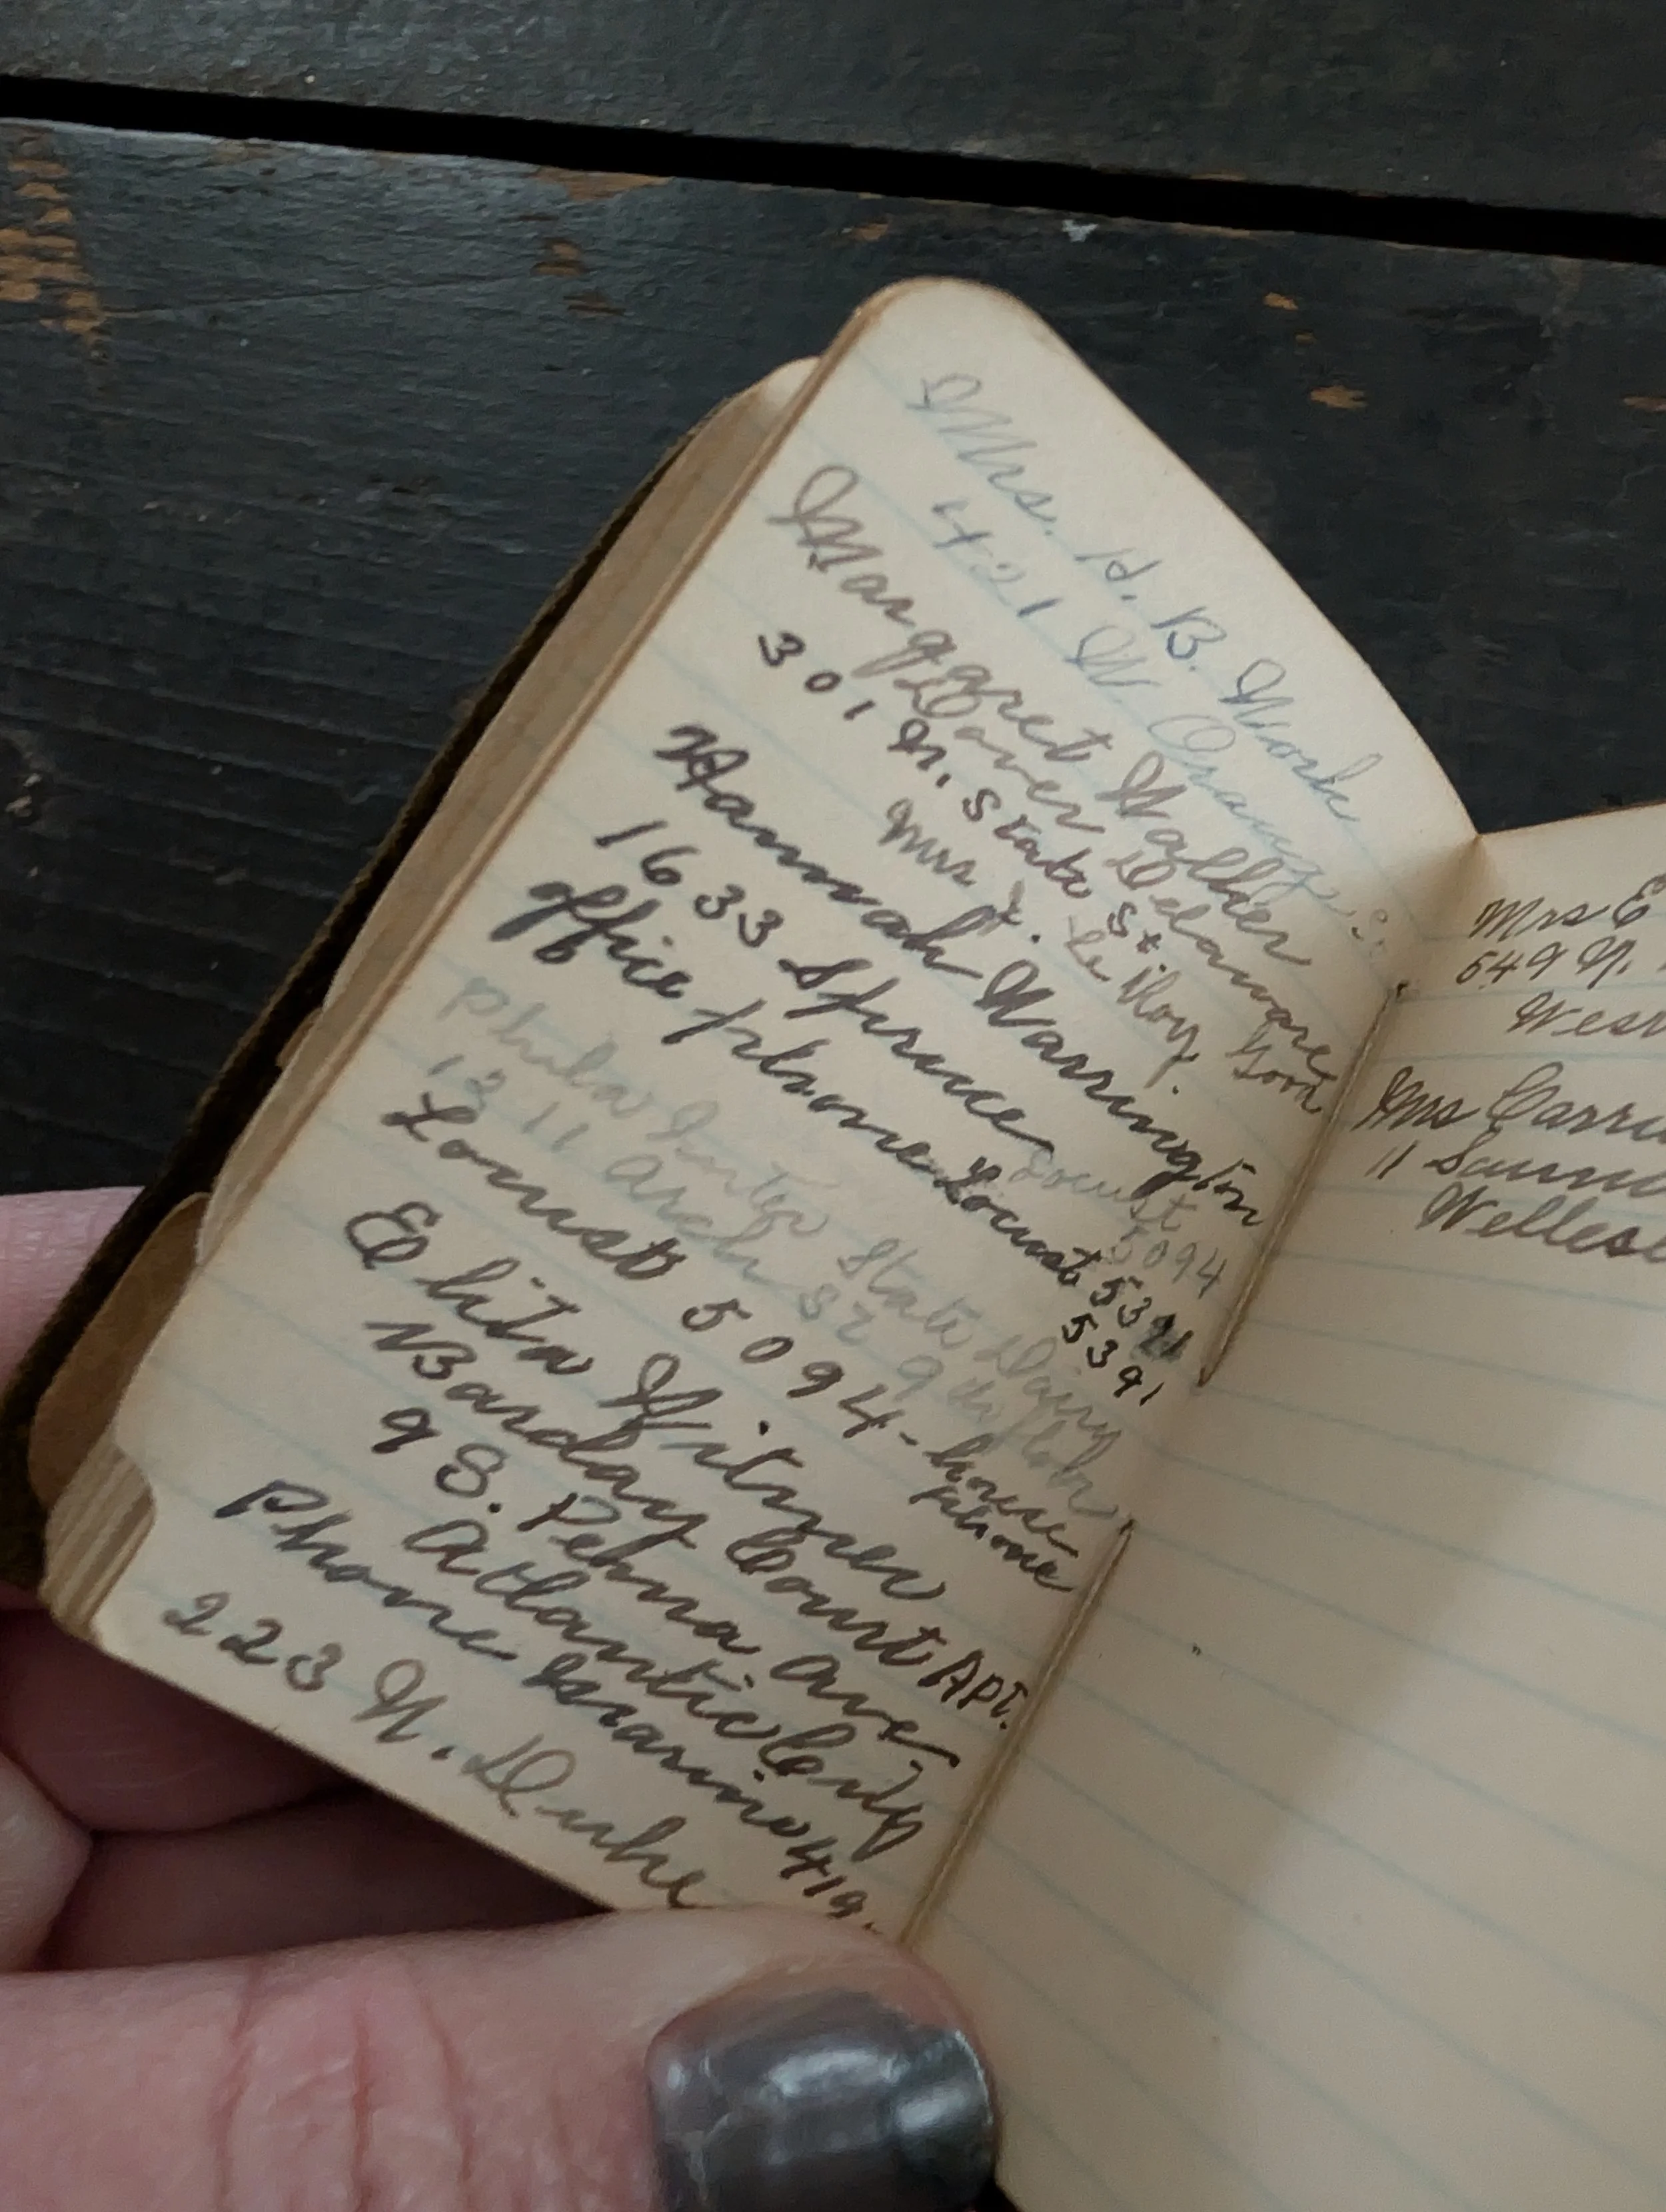 Mrs. H. B. Work
421 W Orange St.
Margaret Walker
Dover Delaware
301 N. State St.
Mrs J. Le Roy
Hannah Warrington
1633 Spruce Locust
5094
office phone Locust 5391
5391
Phila Inter State Dairy
1211 Arch St 9th
Locust 5094 - house
phone
Witmer
Barclay Court Apt.
9 S. Penna ave.
Atlantic City
Phone Marine 419.
223 N. Duke
Mrs E
549 N.
West
Mrs Carri
11
Wellesl